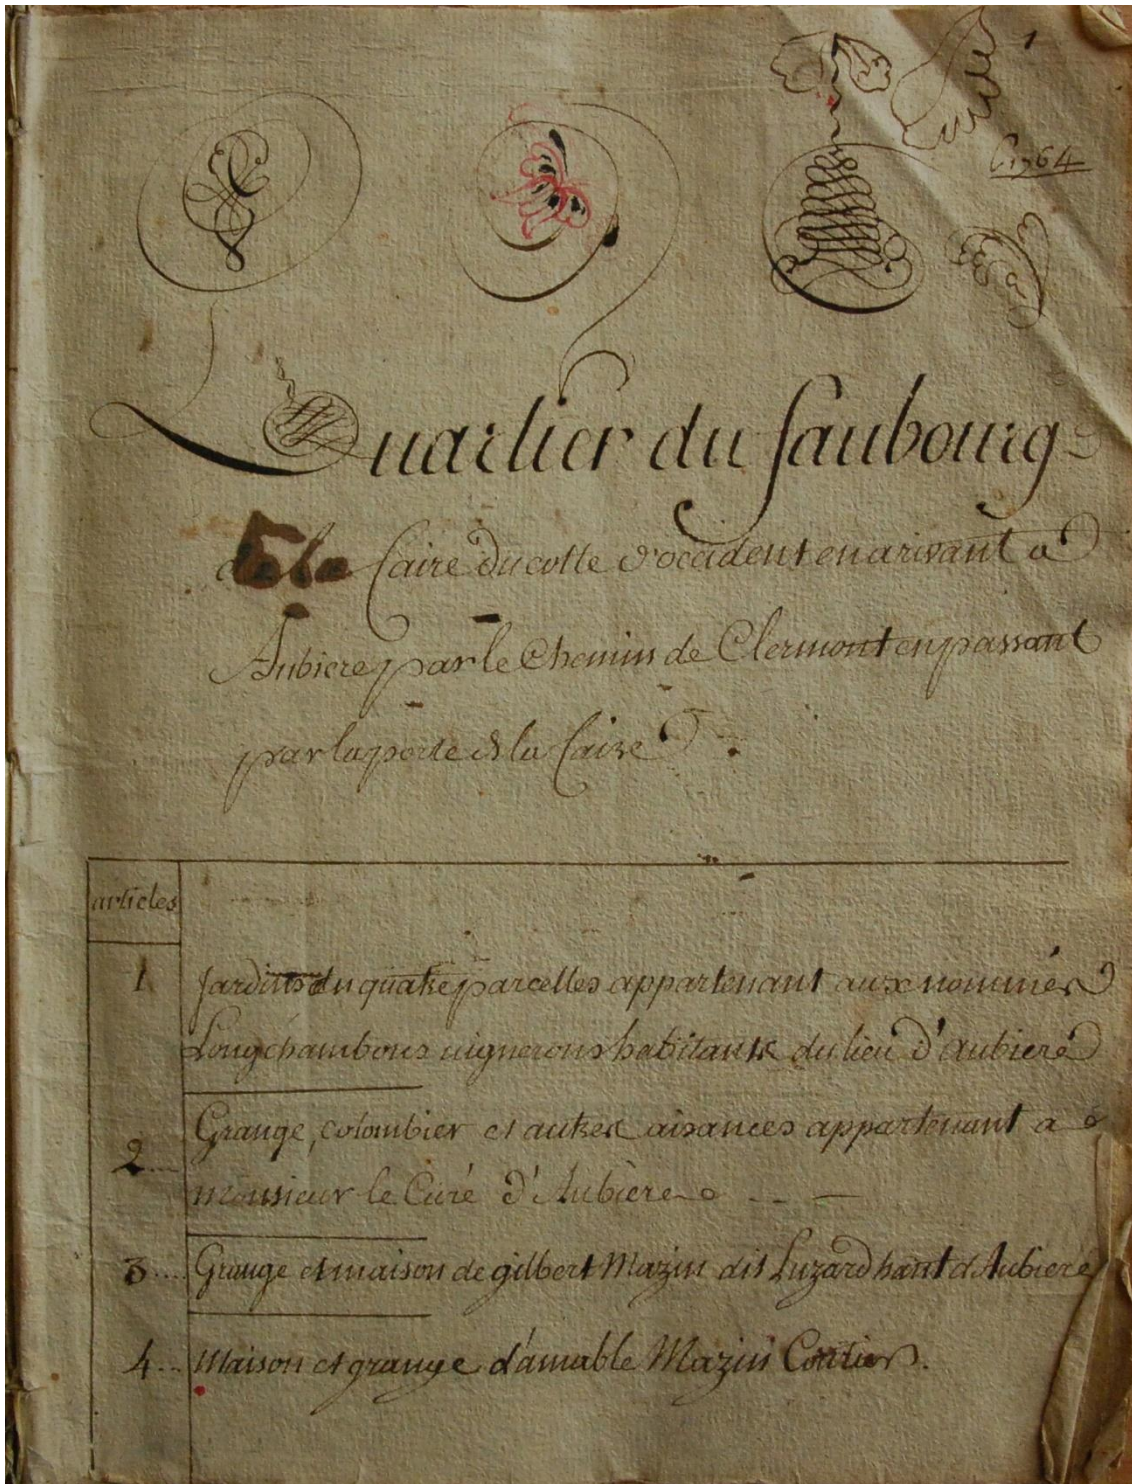 1
C 1764
Quartier du faubourg
de la Caire du cotte d'occident en arivant a
Aubiere par le Chemin de Clermont en passant
par la porte de la Caire
articles
1 Jardin en quatre parcelles appartenant aux nommés
Longchambons vignerons habitants du lieu d'Aubiere
2 Grange, colombier et autres aisances appartenant a
monsieur le Curé d'Aubiere
3 Grange et maison de gilbert Mazin dit Luzard hant d'Aubiere
4 Maison et grange d'amable Mazin